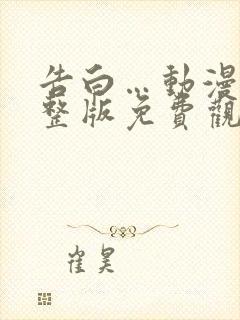 告白…動漫
整版免費觀
崔昊